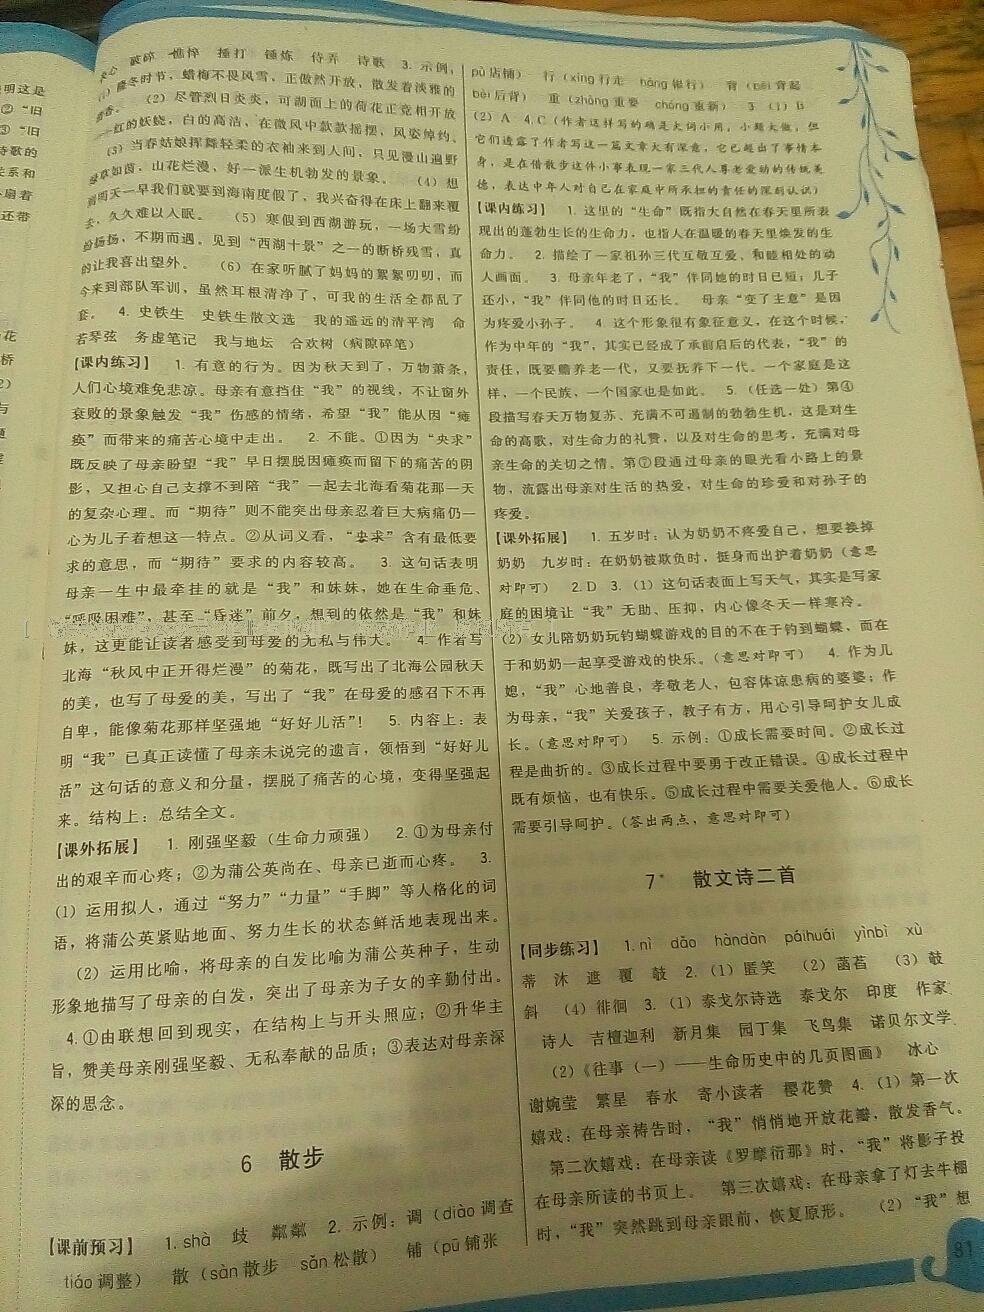 明这是
② “旧
③ “旧
诗歌的
关系和
扇着
还带
破碎 憔悴 捶打 锤炼 侍弄 诗歌 3. 示例，
(1) 隆冬时节，蜡梅不畏风雪，正傲然开放，散发着淡雅的
清香。 (2) 尽管烈日炎炎，可湖面上的荷花正竞相开放
——红的妖娆，白的高洁，在微风中款款摇摆，风姿绰约。
(3) 当春姑娘挥舞轻柔的衣袖来到人间，只见漫山遍野
绿草如茵，山花烂漫，好一派生机勃发的景象。 (4) 想
到明天一早我们就要到海南度假了，我兴奋得在床上翻来覆
去，久久难以入眠。 (5) 寒假到西湖游玩，一场大雪纷
纷扬扬，不期而遇。见到“西湖十景”之一的断桥残雪，真
的让我喜出望外。 (6) 在家听腻了妈妈的絮絮叨叨，而
今来到部队军训，虽然耳根清净了，可我的生活全都乱了
套。 4. 史铁生 史铁生散文选 我的遥远的清平湾 命
若琴弦 务虚笔记 我与地坛 合欢树（病隙碎笔）
【课内练习】 1. 有意的行为。因为秋天到了，万物萧条，
人们心境难免悲凉。母亲有意挡住“我”的视线，不让窗外
衰败的景象触发“我”伤感的情绪，希望“我”能从因“瘫
痪”而带来的痛苦心境中走出。 2. 不能。①因为“央求”
既反映了母亲盼望“我”早日摆脱因瘫痪而留下的痛苦的阴
影，又担心自己支撑不到陪“我”一起去北海看菊花那一天
的复杂心理。而“期待”则不能突出母亲忍着巨大病痛仍一
心为儿子着想这一特点。②从词义看，“央求”含有最低要
求的意思，而“期待”要求的内容较高。 3. 这句话表明
母亲一生中最牵挂的就是“我”和妹妹，她在生命垂危、
“呼吸困难”，甚至“昏迷”前夕，想到的依然是“我”和妹
妹，这更能让读者感受到母爱的无私与伟大。 4. 作者写
北海“秋风中正开得烂漫”的菊花，既写出了北海公园秋天
的美，也写了母爱的美，写出了“我”在母爱的感召下不再
自卑，能像菊花那样坚强地“好好儿活”！ 5. 内容上：表
明“我”已真正读懂了母亲未说完的遗言，领悟到“好好儿
活”这句话的意义和分量，摆脱了痛苦的心境，变得坚强起
来。结构上：总结全文。
【课外拓展】 1. 刚强坚毅（生命力顽强） 2. ①为母亲付
出的艰辛而心疼；②为蒲公英尚在、母亲已逝而心疼。 3.
(1) 运用拟人，通过“努力”“力量”“手脚”等人格化的词
语，将蒲公英紧贴地面、努力生长的状态鲜活地表现出来。
(2) 运用比喻，将母亲的白发比喻为蒲公英种子，生动
形象地描写了母亲的白发，突出了母亲为子女的辛勤付出。
4. ①由联想回到现实，在结构上与开头照应；②升华主
旨，赞美母亲刚强坚毅、无私奉献的品质；③表达对母亲深
深的思念。
6 散步
【课前预习】 1. shà 歧 粼粼 2. 示例：调（diào调查
tiáo调整） 散（sàn散步 sǎn松散） 铺（pū铺张
pù店铺） 行（xíng行走 háng银行） 背（bēi背起
bèi后背） 重（zhòng重要 chóng重新） 3. (1) B
(2) A 4. C（作者这样写的确是大词小用，小题大做，但
它们透露了作者写这一篇文章大有深意，它已超出了事情本
身，是在借散步这件小事表现一家三代人尊老爱幼的传统美
德，表达中年人对自己在家庭中所承担的责任的深刻认识）
【课内练习】 1. 这里的“生命”既指大自然在春天里所表
现出的蓬勃生长的生命力，也指人在温暖的春天里焕发的生
命力。 2. 描绘了一家祖孙三代互敬互爱、和睦相处的动
人画面。 3. 母亲年老了，“我”伴同她的时日已短；儿子
还小，“我”伴同他的时日还长。 母亲“变了主意”是因
为疼爱小孙子。 4. 这个形象很有象征意义，在这个时候，
作为中年的“我”，其实已经成了承前启后的代表，“我”的
责任，既要赡养老一代，又要抚养下一代。一个家庭是这
样，一个民族，一个国家也是如此。 5.（任选一处）第④
段描写春天万物复苏、充满不可遏制的勃勃生机，这是对生
命的高歌，对生命力的礼赞，以及对生命的思考，充满对母
亲生命的关切之情。第⑦段通过母亲的眼光看小路上的景
物，流露出母亲对生活的热爱，对生命的珍爱和对孙子的
疼爱。
【课外拓展】 1. 五岁时：认为奶奶不疼爱自己，想要换掉
奶奶 九岁时：在奶奶被欺负时，挺身而出护着奶奶（意思
对即可） 2. D 3. (1) 这句话表面上写天气，其实是写家
庭的困境让“我”无助、压抑，内心像冬天一样寒冷。
(2) 女儿陪奶奶玩钓蝴蝶游戏的目的不在于钓到蝴蝶，而在
于和奶奶一起享受游戏的快乐。（意思对即可） 4. 作为儿
媳，“我”心地善良，孝敬老人，包容体谅患病的婆婆；作
为母亲，“我”关爱孩子，教子有方，用心引导呵护女儿成
长。（意思对即可） 5. 示例：①成长需要时间。②成长过
程是曲折的。③成长过程中要勇于改正错误。④成长过程中
既有烦恼，也有快乐。⑤成长过程中需要关爱他人。⑥成长
需要引导呵护。（答出两点，意思对即可）
7* 散文诗二首
【同步练习】 1. nì dǎo hàndàn páihuái yìnbì xù
蒂 沐 遮 覆 攲 2. (1) 匿笑 (2) 菡萏 (3) 攲
斜 (4) 徘徊 3. (1) 泰戈尔诗选 泰戈尔 印度 作家
诗人 吉檀迦利 新月集 园丁集 飞鸟集 诺贝尔文学
(2)《往事（一）——生命历史中的几页图画》 冰心
谢婉莹 繁星 春水 寄小读者 樱花赞 4. (1) 第一次
嬉戏：在母亲祷告时，“我”悄悄地开放花瓣，散发香气。
第二次嬉戏：在母亲读《罗摩衍那》时，“我”将影子投
在母亲所读的书页上。 第三次嬉戏：在母亲拿了灯去牛棚
时，“我”突然跳到母亲跟前，恢复原形。 (2) “我”想
81